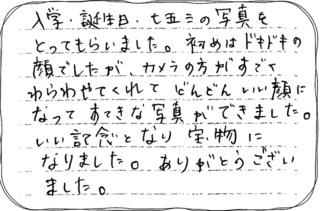 入学・誕生日・七五三の写真を
とってもらいました。初めはドキドキの
顔でしたが、カメラの方がすぐく
わらわせてくれて どんどん いい顔に
なって すてきな写真ができました。
いい記念となり 宝物に
なりました。ありがとうござい
ました。